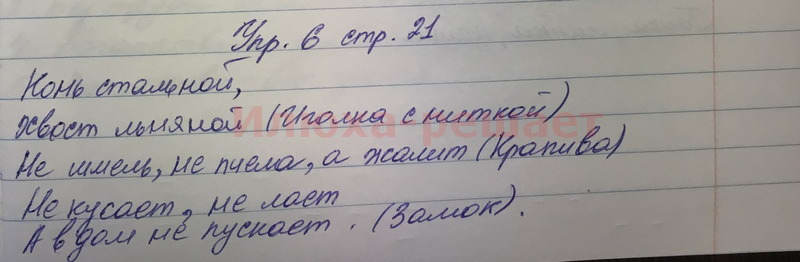 Упр. 6 стр. 21
Конь стальной,
хвост льняной (Иголка с ниткой)
Илюха-решает
Не шмель, не пчела, а жалит (Крапива)
Не кусает, не лает
А в дом не пускает. (Замок).